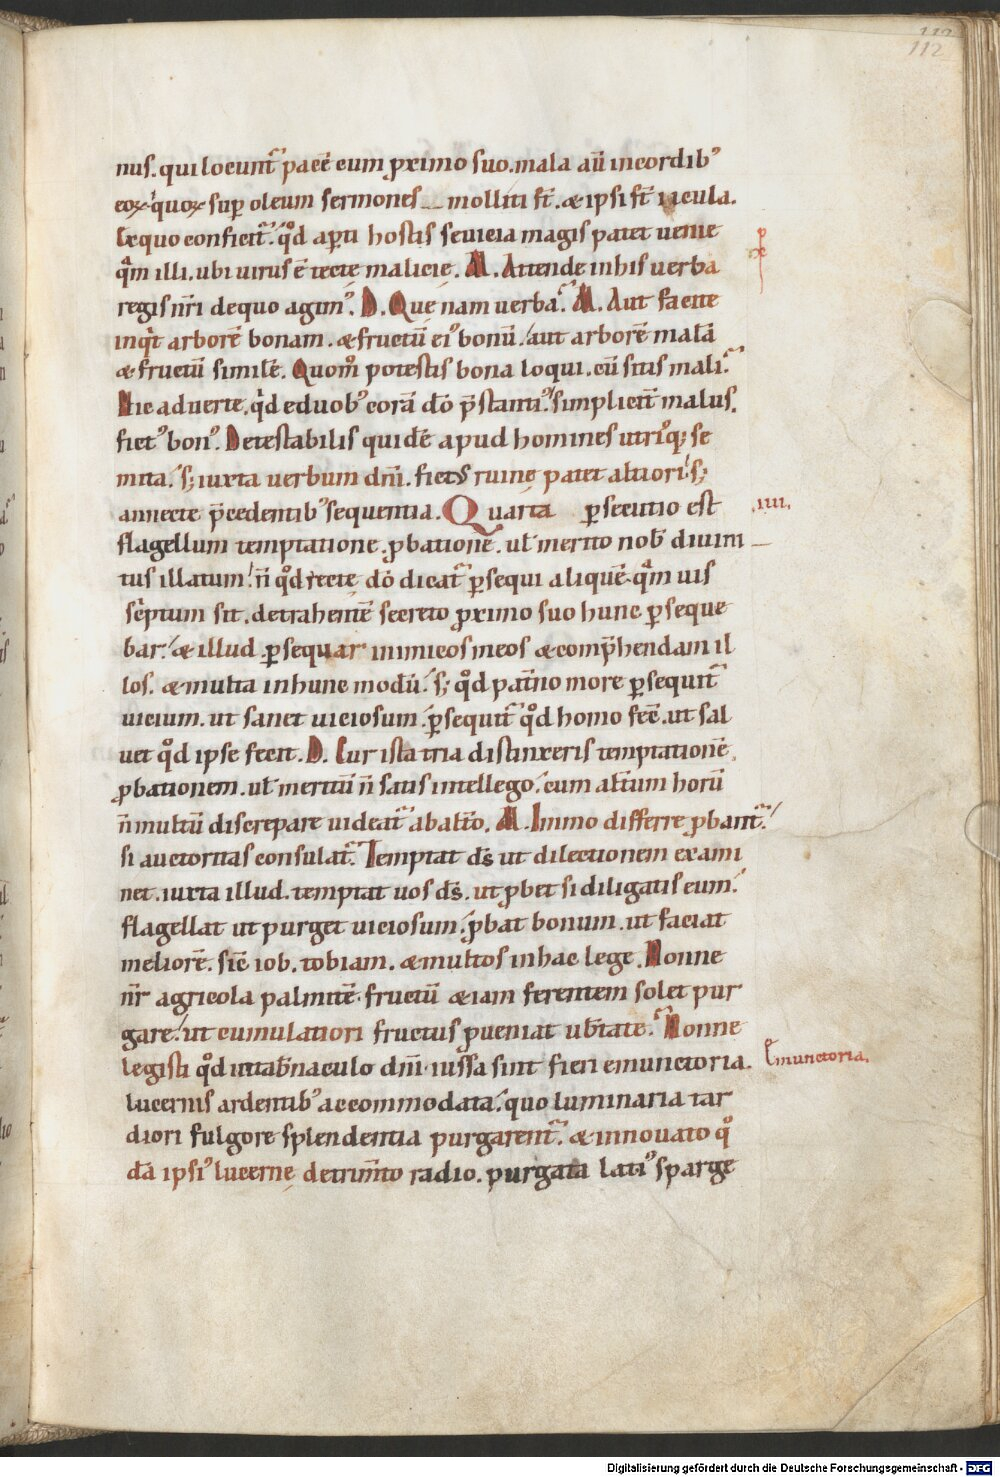 112
112
nus. qui locunt᷑ pacē cum ꝓximo suo. mala aū incordib⁹
eoꝝ. quoꝝ suꝑ oleum sermones molliti st̄. & ipsi st̄ iacula.
Ex quo conficit᷑. qd̄ aꝑti hostis seuicia magis patet uenie
qͣm illi. ubi uirus ē tectę malicię. M. Attende inhis uerba
regis nr̄i dequo agim⁹. D. Quę nam uerba? M. Aut facite
inqͥt arborē bonam. & fructū ei⁹ bonū. aut arborē malā
& fructū similē. Quom̊ potestis bona loqui. cū sitis mali?
Hic aduerte. qͥd eduob⁹ corā dō p̄stanti⁹. simplicit̄ malus.
fiet⁹ bon⁹. Detestabilis quidē apud homines utriq; se
mita. s; iuxta uerbum dnī. fict⁹ ruinę patet altiori. s;
annecte p̄cedentib⁹ sequentia. Quarta ꝑsecutio est
.iiii.
flagellum temptatione. ꝓbationē. ul̄ merito nob̄ diuini
tus illatum. n̄ qd̄ recte dō dicat᷑ ꝑsequi aliquē. qͣm uis
scͥptum sit. detrahentē secreto ꝓximo suo hunc ꝑseque
bar. & illud. ꝑsequar inimicos meos & comp̄hendam il
los. & multa inhunc modū. s; qd̄ pat̄no more ꝑsequit᷑
uicium. ut sanet uiciosum. ꝑsequit᷑ qd̄ homo fec̄. ut sal
uet qd̄ ipse fecit. D. Cur ista tria distinxeris temptationē.
ꝓbationem. ul̄ meritū n̄ satis intellego. cum alt̄um horū
n̄ multū discrepare uideat᷑ abalt̄o. M. Immo differre ꝓbant᷑.
si auctoritas consulat᷑. Temptat dś ut dilectionem exami
net. iuxta illud. temptat uos dś. ut ꝓbet si diligatis eum.
flagellat ut purget uiciosum. ꝓbat bonum. ut faciat
meliorē. sic̄ iob. tobiam. & multos inhac lege. Nonne
nr̄ agricola palmitē fructū & iam ferentem solet pur
gare. ut cumulatiori fructus ꝓueniat ub̄tate? Nonne
legisti qd̄ intab̄naculo dnī iussa sint fieri emunctoria.
Emunctoria.
lucernis ardentib⁹ accommodata. quo luminaria tar
diori fulgore splendentia purgarent᷑. & innouato qͦ
dā ipsi⁹ lucernę detrim̄to radio. purgata lati⁹ sparge
Digitalisierung gefördert durch die Deutsche Forschungsgemeinschaft - DFG